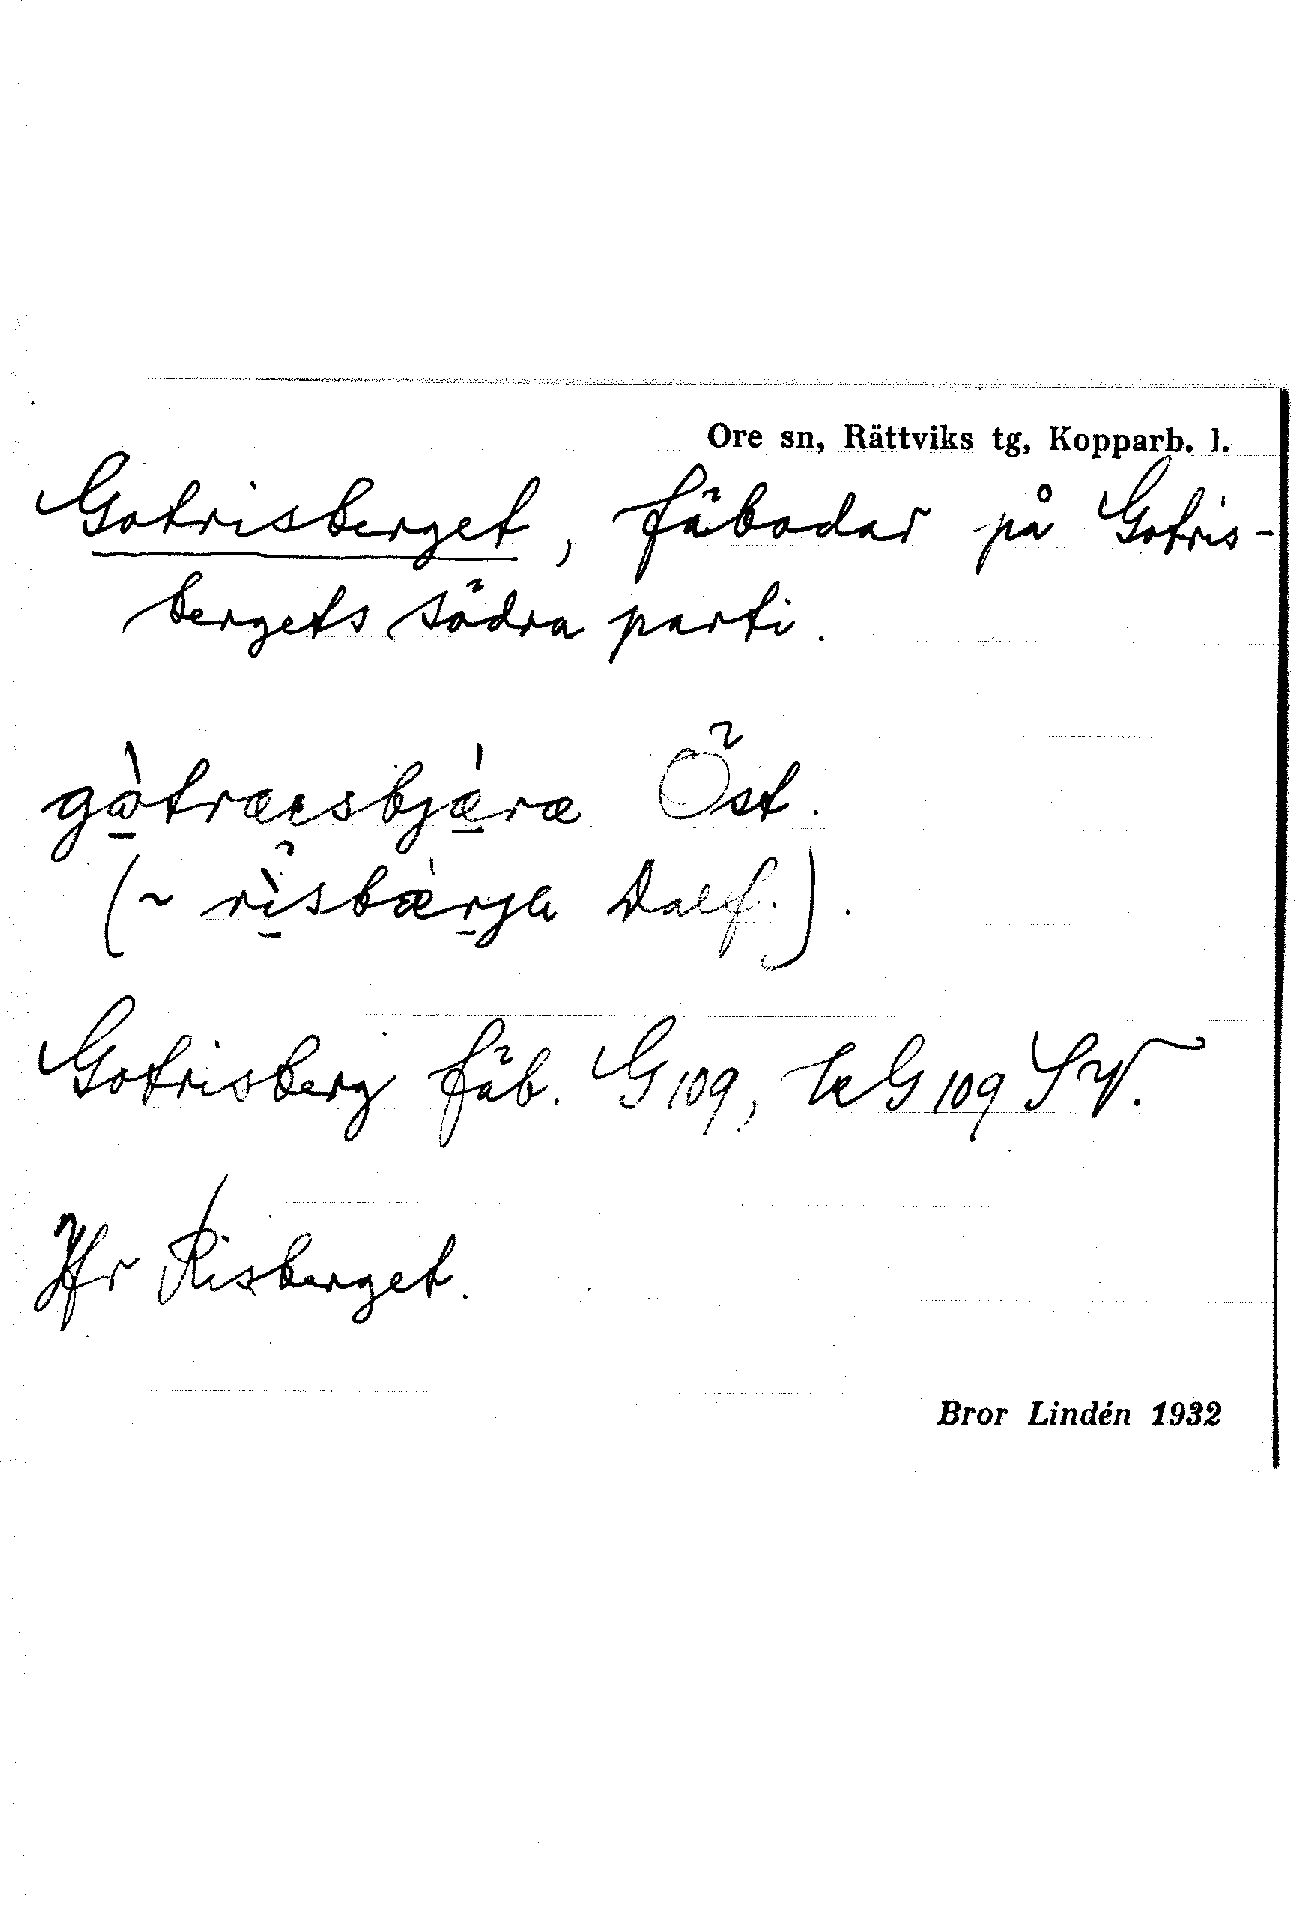 Ore sn, Rättviks tg, Kopparb. l.
Gotrisberget, fäbodar på Gotris-
bergets södra parti.
Öst.
(~ Dalf.).
Gotrisberg fäb. G 109, kG 109 SV.
Jfr Risberget.
Bror Lindén 1932